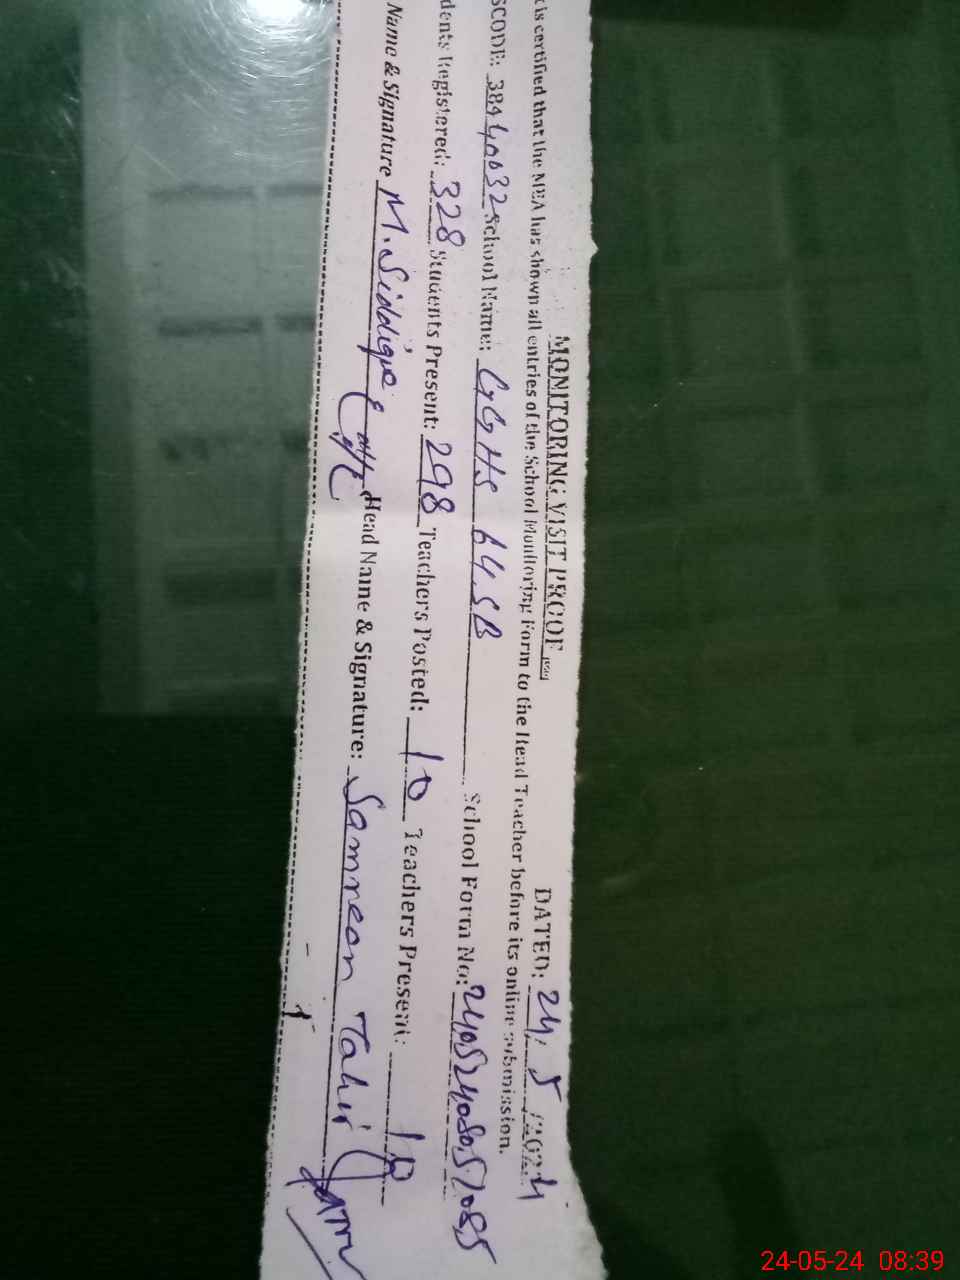 MONITORING VISIT PROOF DATED: 24.5./2024
t is certified that the MEA has shown all entries of the School Monitoring Form to the Head Teacher before its online submission.
SCODE: 38440032 School Name: GGHS 64.SB School Form No: 240524080,57085
dents Registered: 328 Students Present: 298 Teachers Posted: 10 Teachers Present: 10
Name & Signature M. Siddique Head Name & Signature: Samreen Tahir
24-05-24 08:39